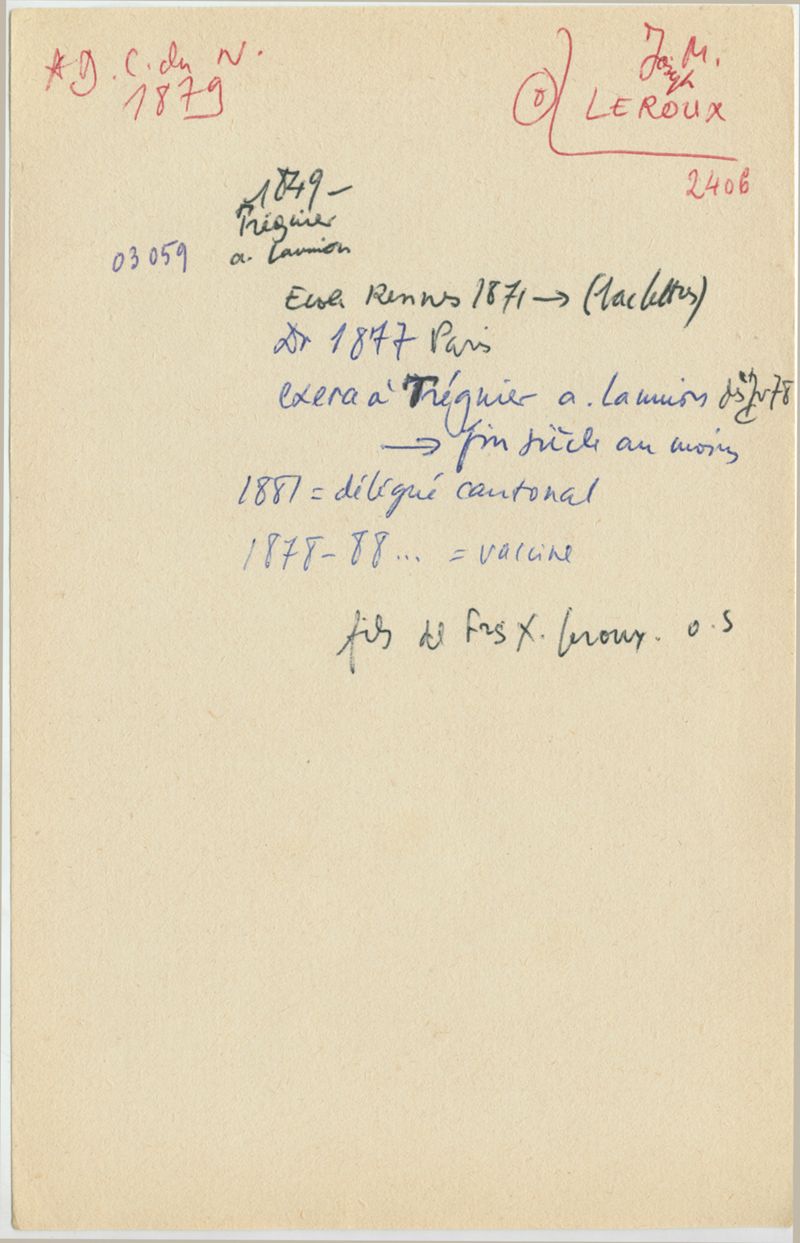 AD. C. du N.
1879
Joseph M.
LEROUX
2406
1849 -
Tréguier
a. Lannion
03059
Ecole Rennes 1871 → (bac lettres)
Dr 1877 Paris
exerça à Tréguier a. Lannion dès 78
→ fin siècle au moins
1881 = délégué cantonal
1878 - 88... = vaccine
fils de Frs X. Leroux. o.s